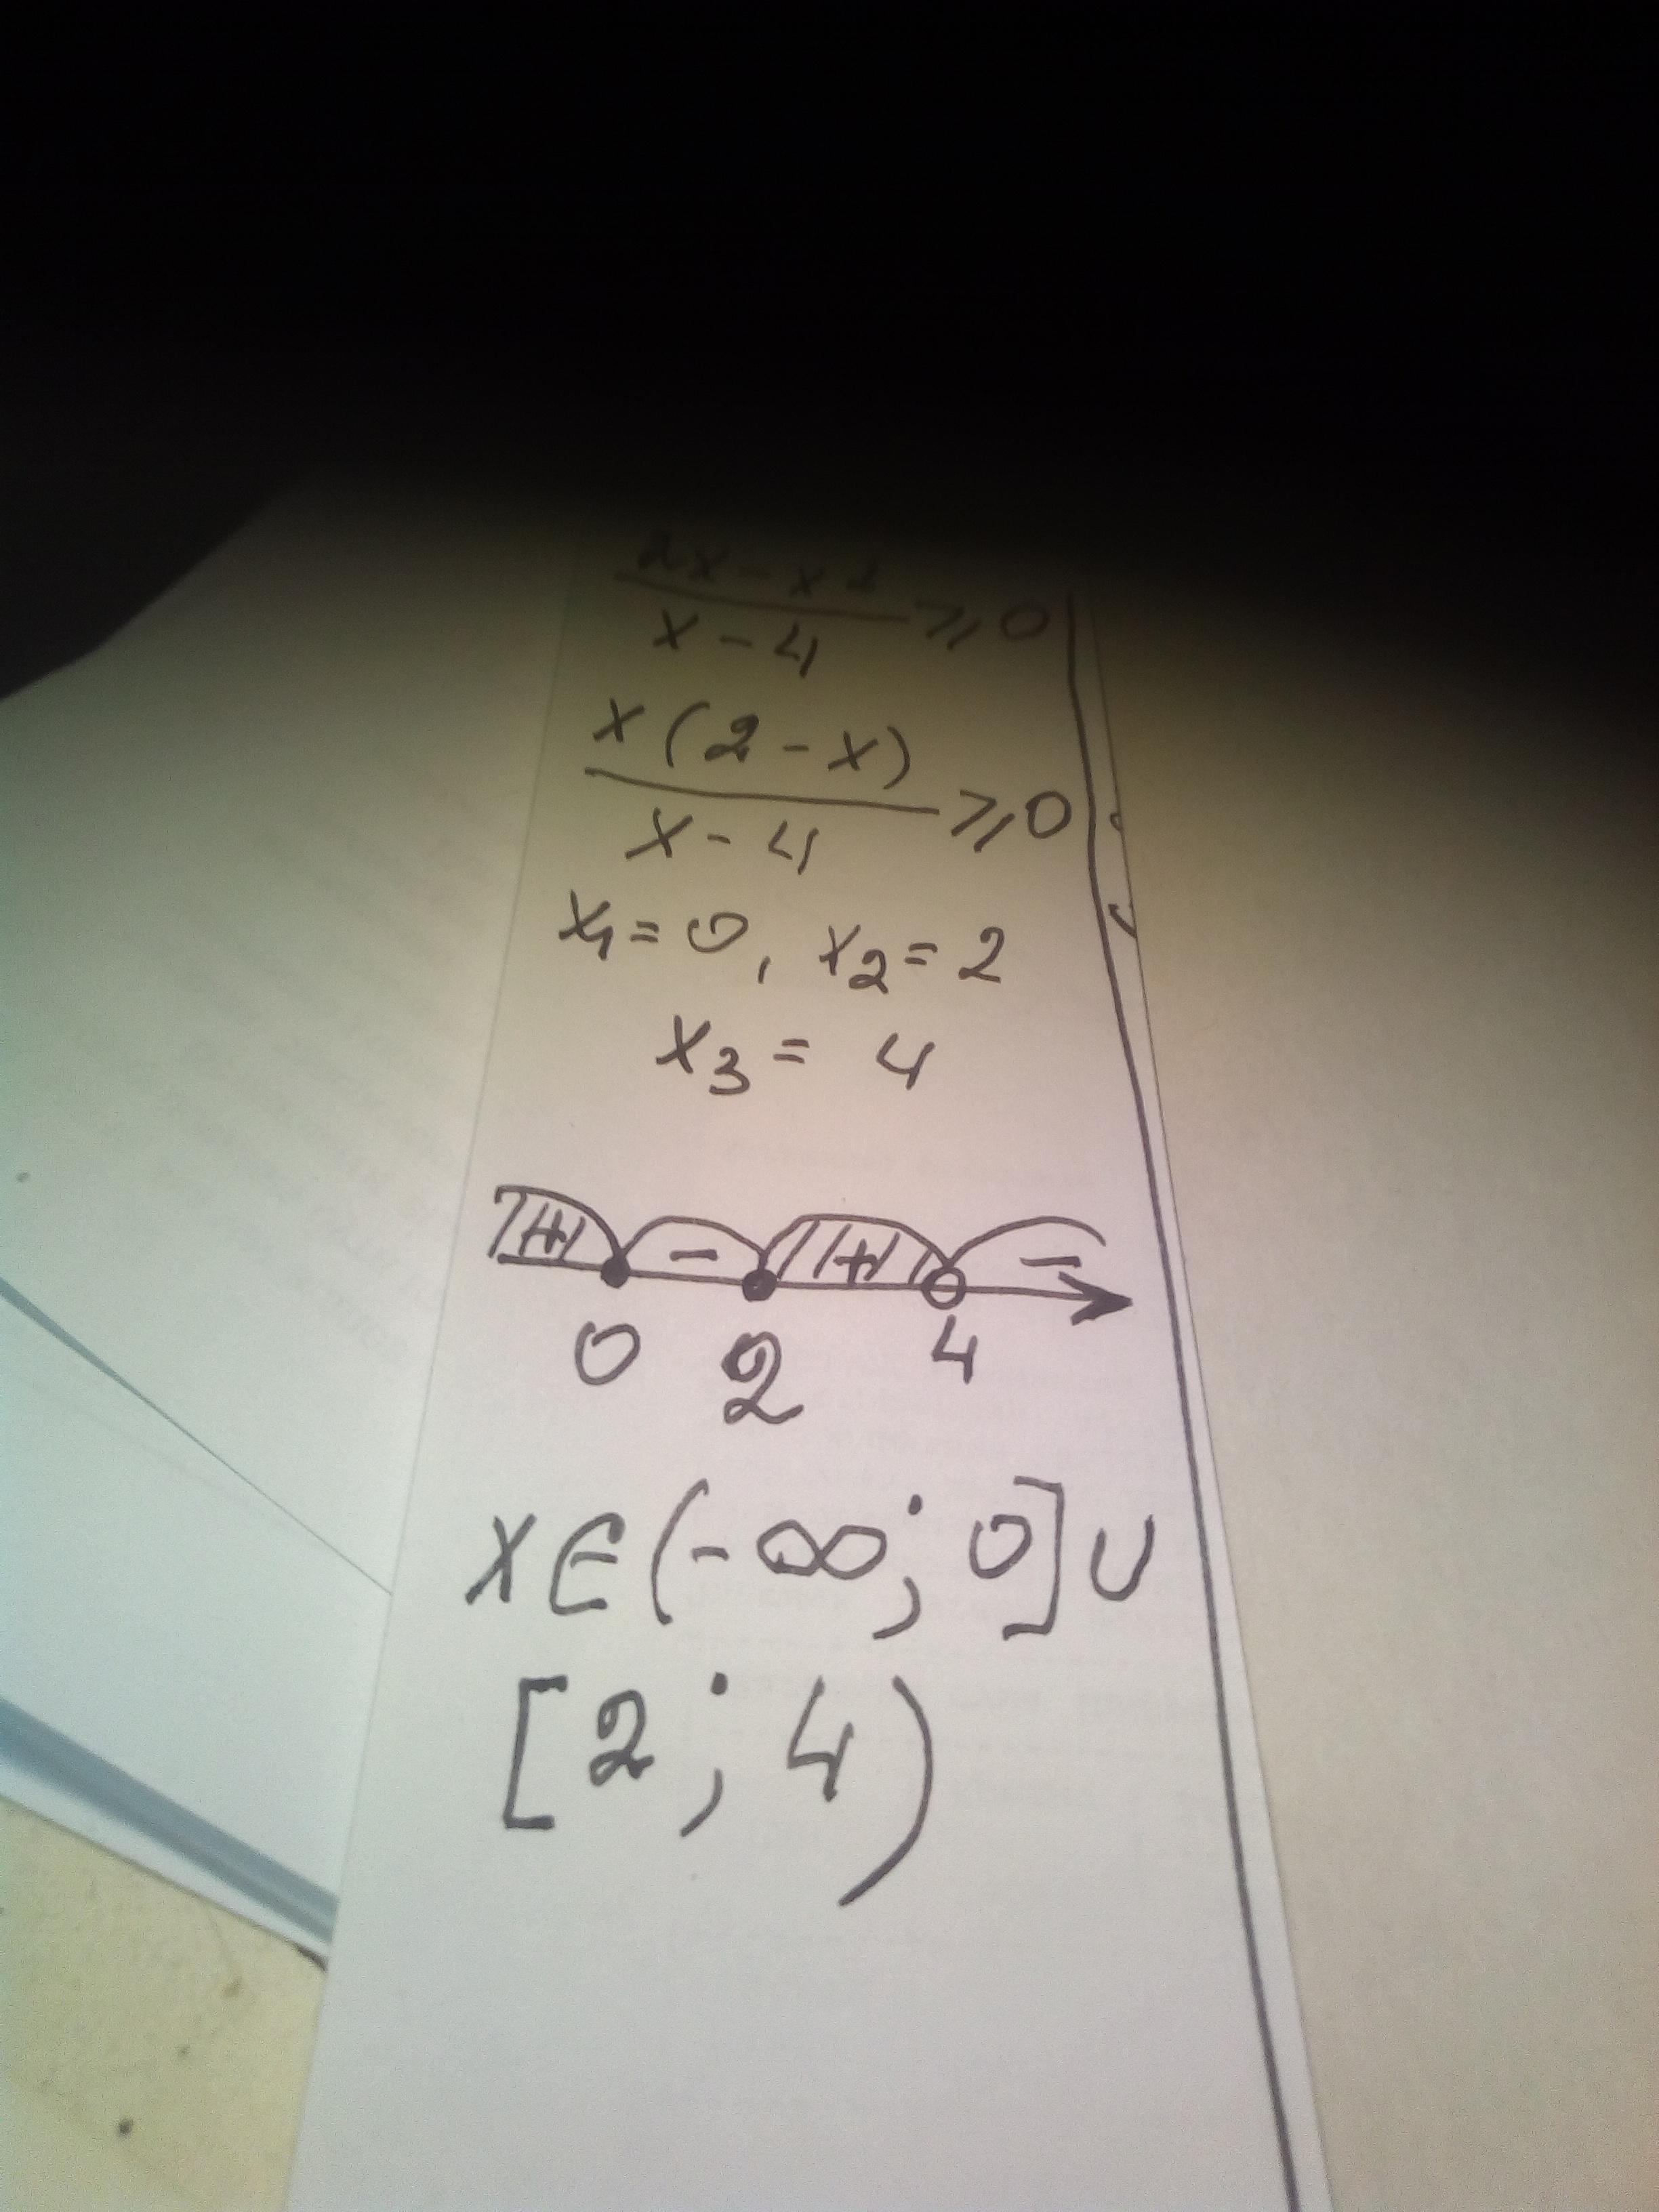 2x - x²
x - 4 ≥ 0
x(2 - x)
x - 4 ≥ 0
x₁ = 0, x₂ = 2
x₃ = 4
+ - + -
0 2 4
x ∈ (-∞; 0] ∪
[2; 4)